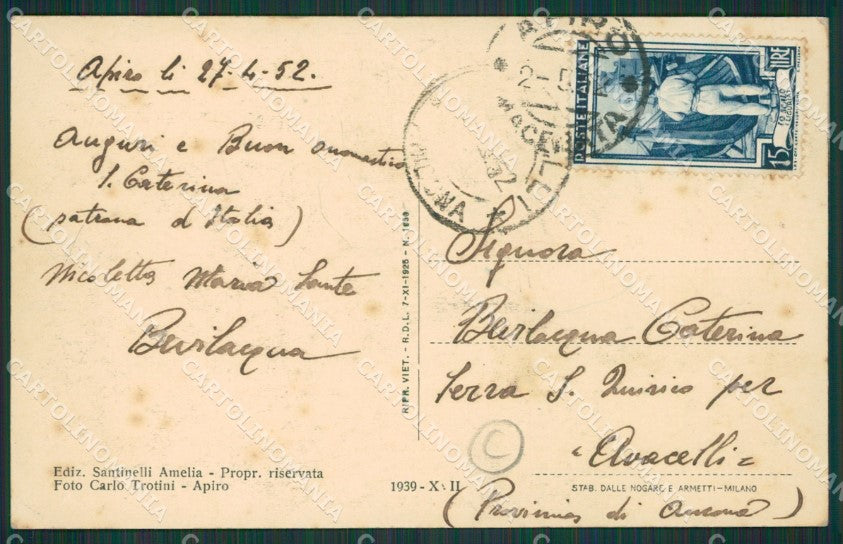 Apiro li 27-4-52.
Auguri e Buon onomastico
S. Caterina
(patrona d'Italia)
Nicoletta Maria Sante
Bevilacqua
Ediz. Santinelli Amelia - Propr. riservata
Foto Carlo Trotini - Apiro
1939 - XVII
RIPR. VIET. - R.D.L. 7-XI-1925 - N. 1939
APIRO
MACERATA
POSTE ITALIANE
LIRE
15
Signora
Bevilacqua Caterina
Serra S. Quirico per
"Avacelli"
STAB. DALLE NOGARE E ARMETTI - MILANO
(Provincia di Ancona)
C
CARTOLINOMANIA